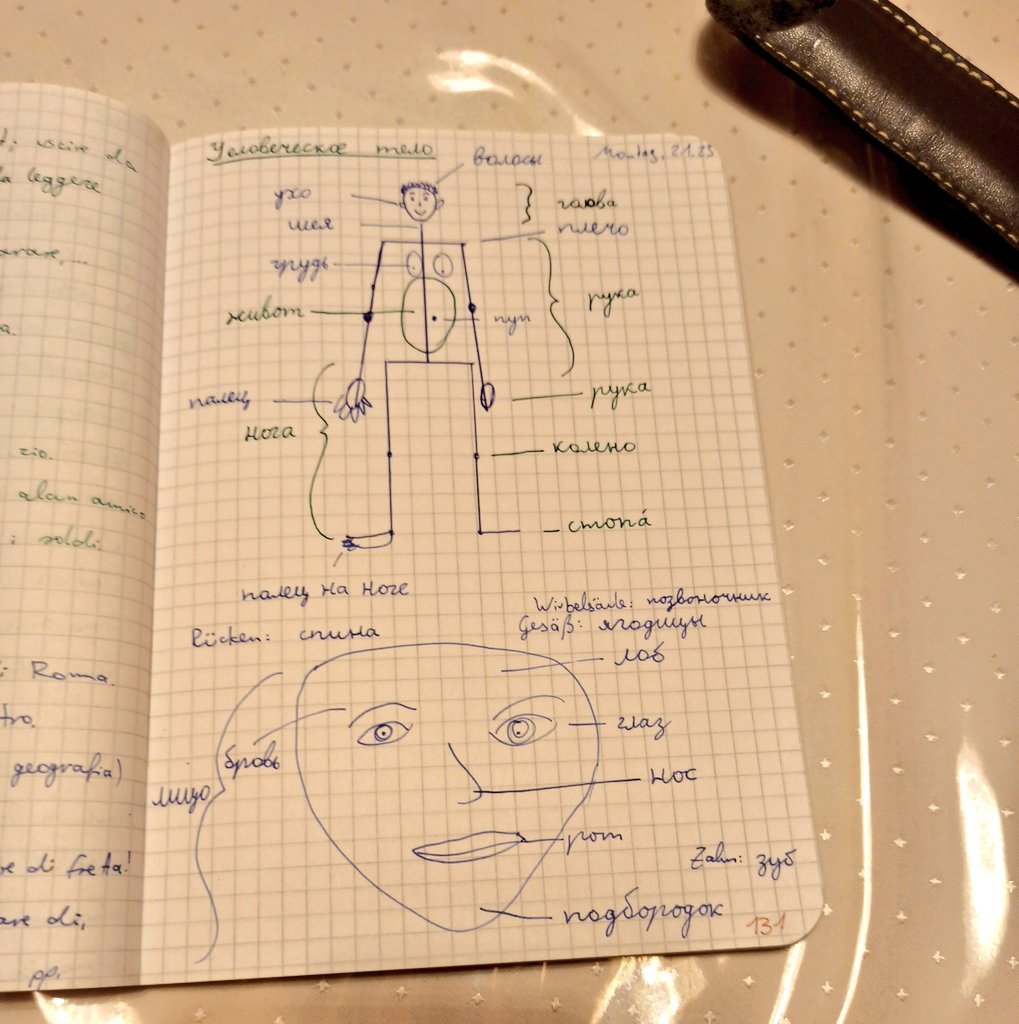 da
leggere
zio.
alan amico
i soldi
Roma.
geografia)
di freta!
di,
Человеческое тело
Montag, 2.1.23
волосы
ухо
голова
шея
плечо
грудь
рука
живот
пуп
палец
рука
нога
колено
стопа́
палец на ноге
Wirbelsäule: позвоночник
Gesäß: ягодицы
Rücken: спина
лоб
глаз
бровь
нос
лицо
рот
Zahn: зуб
подбородок
131